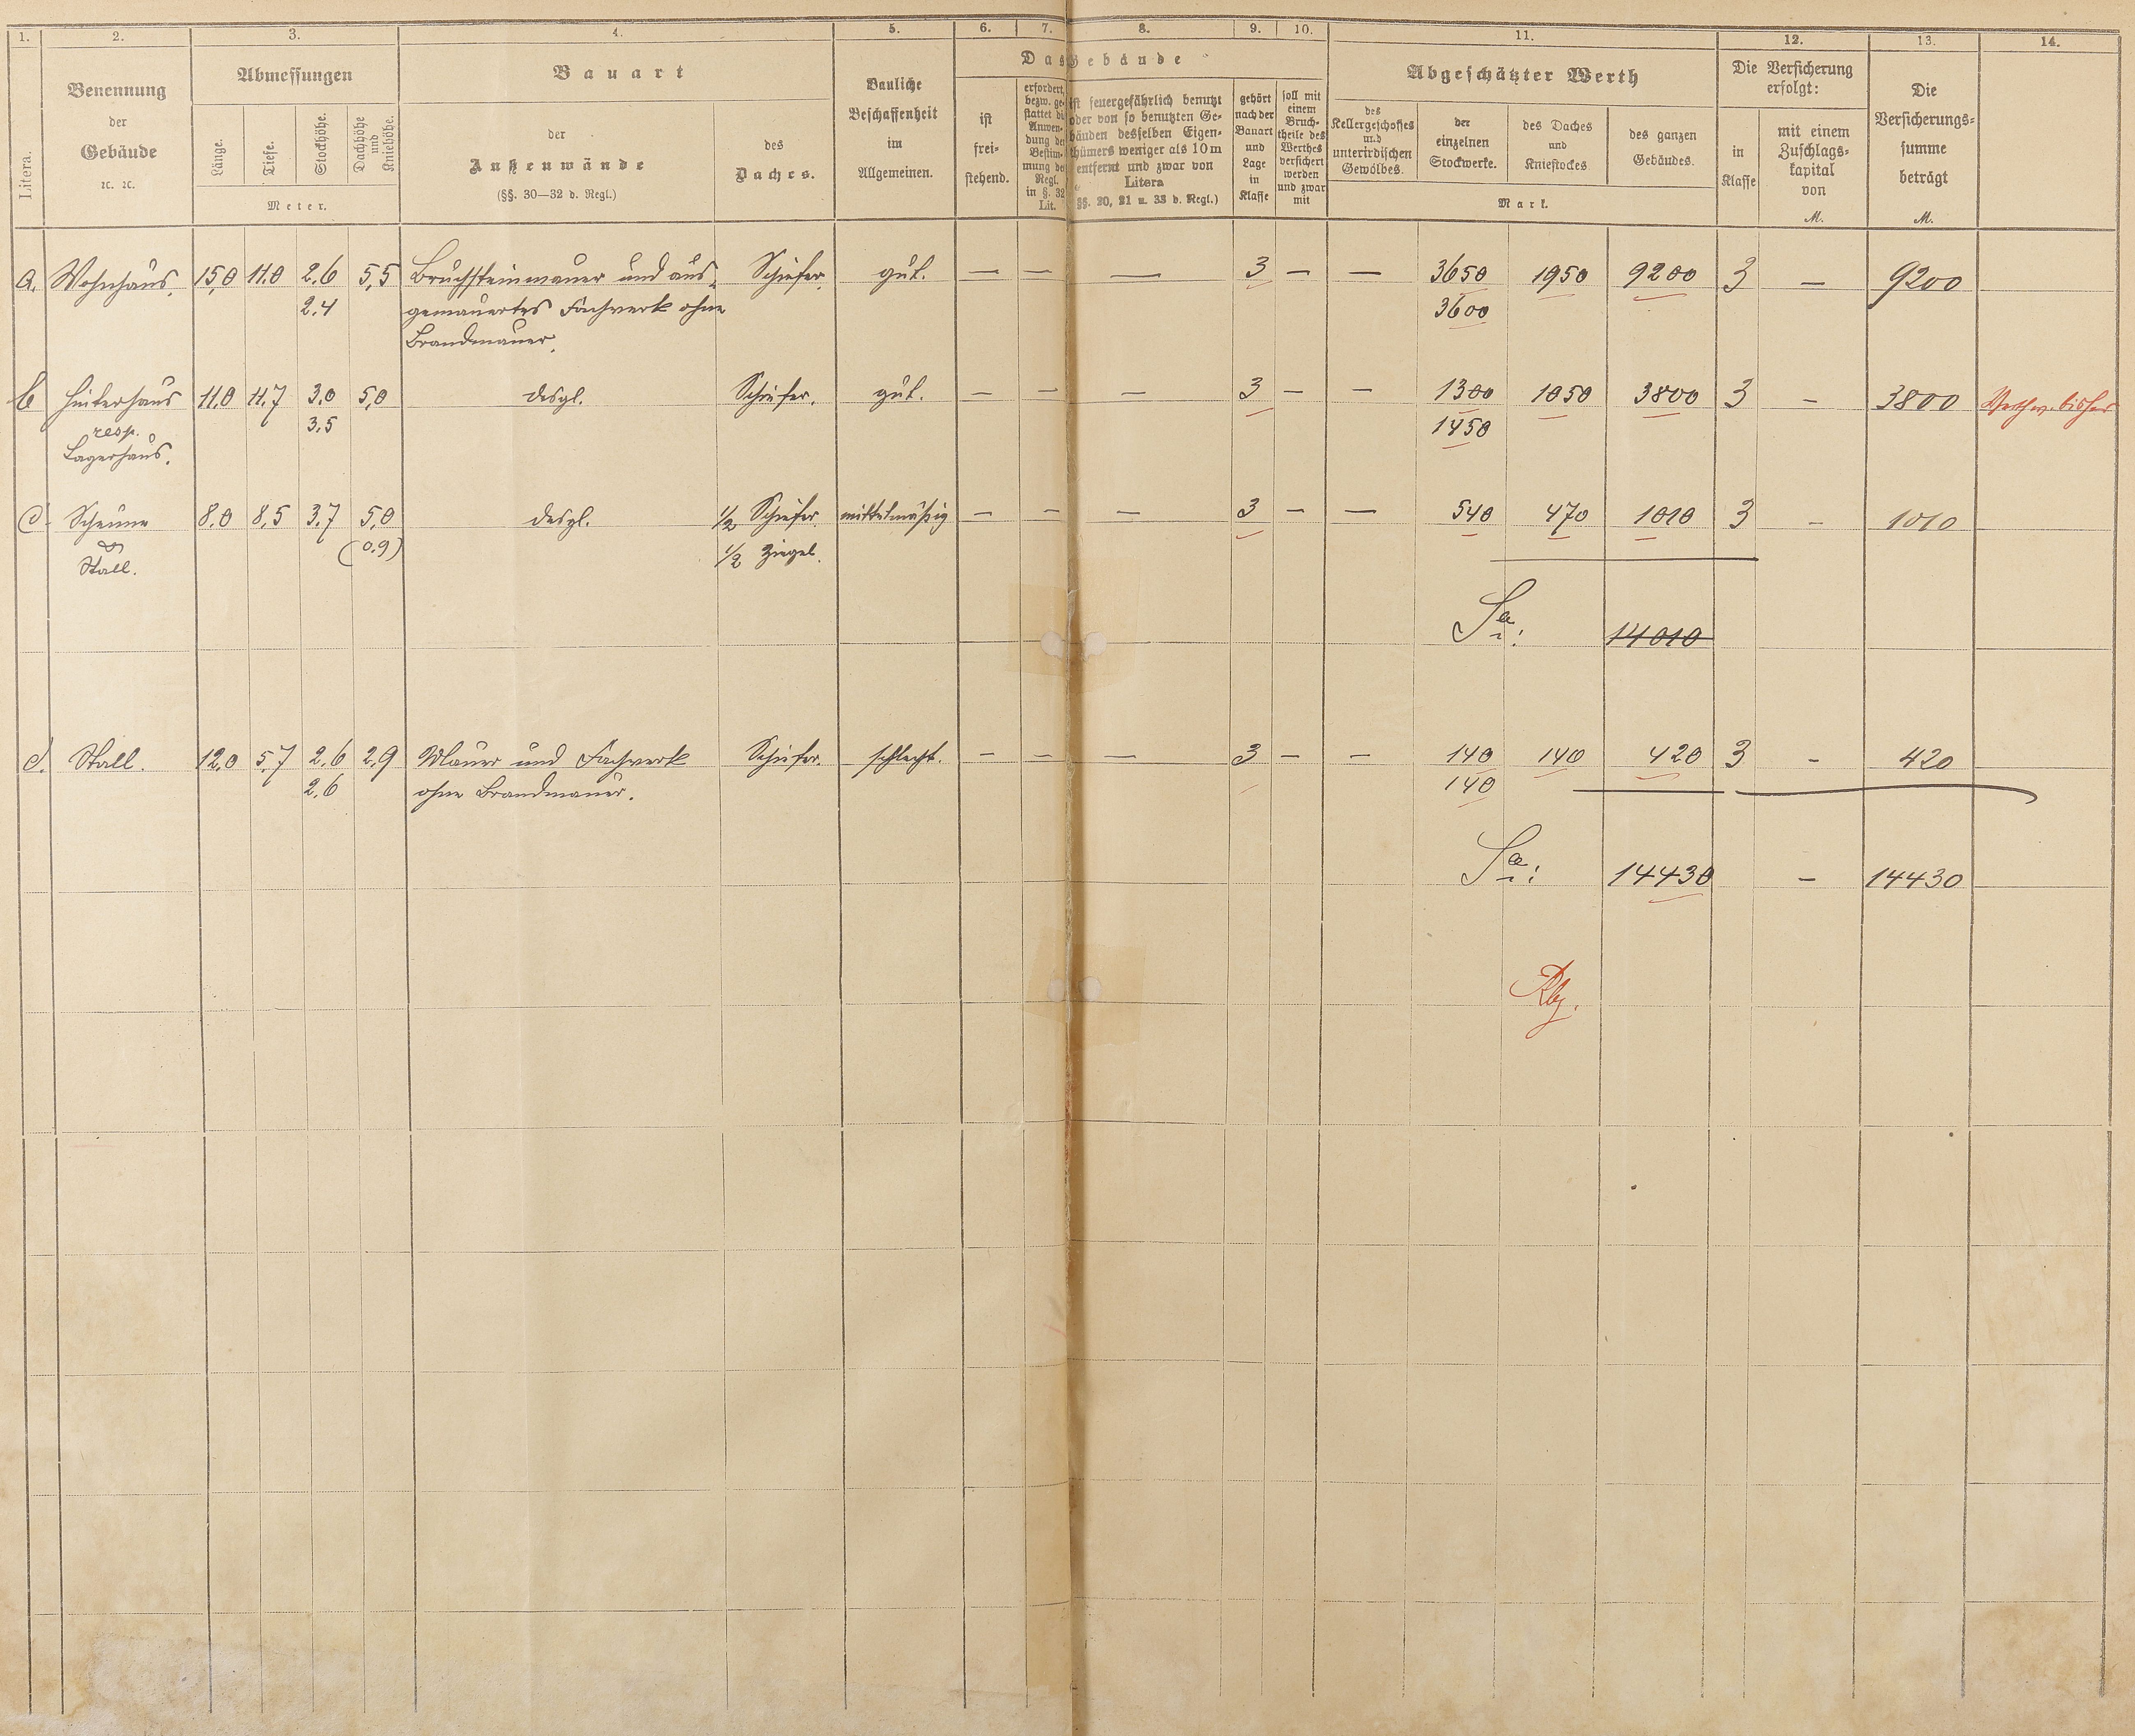 1. 2. 3. 4. 5. 6. 7. 8. 9. 10. 11. 12. 13. 14.
Litera.
Benennung
der
Gebäude
ꝛc. ꝛc.
Abmessungen
Länge. Tiefe. Stockhöhe. Dachhöhe und Kniehöhe.
Meter.
Bauart
der
Außenwände
(§§. 30—32 d. Regl.)
des
Daches.
Bauliche
Beschaffenheit
im
Allgemeinen.
Das Gebäude
ist
frei-
stehend.
erfordert,
bezw. ge-
stattet die
Anwen-
dung der
Bestim-
mung des
Regl.
in §. 32
Lit.
ist feuergefährlich benutzt
oder von so benutzten Ge-
bäuden desselben Eigen-
thümers weniger als 10 m
entfernt und zwar von
Litera
(§§. 20, 21 u. 33 d. Regl.)
gehört
nach der
Bauart
und
Lage
in
Klasse
soll mit
einem
Bruch-
theile des
Werthes
versichert
werden
und zwar
mit
Abgeschätzter Werth
des
Kellergeschosses
und
unterirdischen
Gewölbes.
der
einzelnen
Stockwerke.
des Daches
und
Kniestockes
des ganzen
Gebäudes.
Mark.
Die Versicherung
erfolgt:
in
Klasse
mit einem
Zuschlags-
kapital
von
M.
Die
Versicherungs-
summe
beträgt
M.
a. Wohnhaus. 15,0 11.0 2.6 5,5 Bruchsteinmauer und aus- Schiefer. gut. — — — 3 — — 3650 1950 9200 3 — 9200
2.4 gemauertes Fachwerk ohne 3600
Brandmauer.
b Hinterhaus 11.0 11.7 3.0 5,0 desgl. Schiefer. gut. — — — 3 — — 1300 1050 3800 3 — 3800
resp. 3.5 1450
Lagerhaus.
c. Scheune 8.0 8.5 3.7 5,0 desgl. ½ Schiefer. mittelmäßig — — — 3 — — 540 470 1010 3 — 1010
& (0.9) ½ Ziegel.
Stall.
Sa: 14010
d. Stall. 12.0 5.7 2.6 2.9 Mauer und Fachwerk Schiefer. schlecht. — — — 3 — — 140 140 420 3 — 420
2.6 ohne Brandmauer. 140
Sa: 14430 — 14430